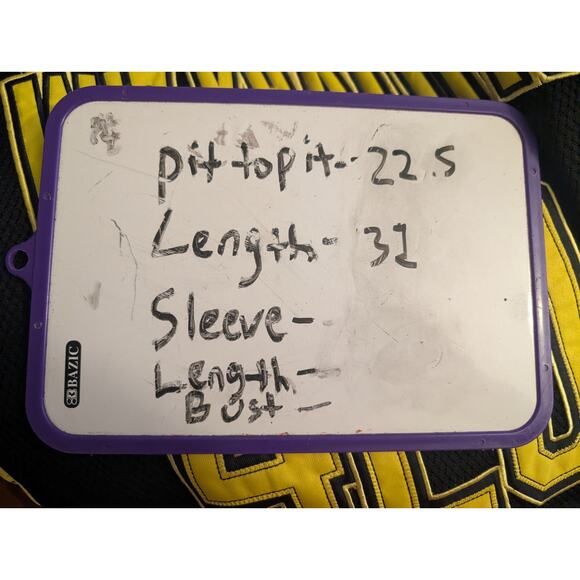 pit to pit-- 22.5
Length- 31
Sleeve-
Length-
Bust -
BAZIC